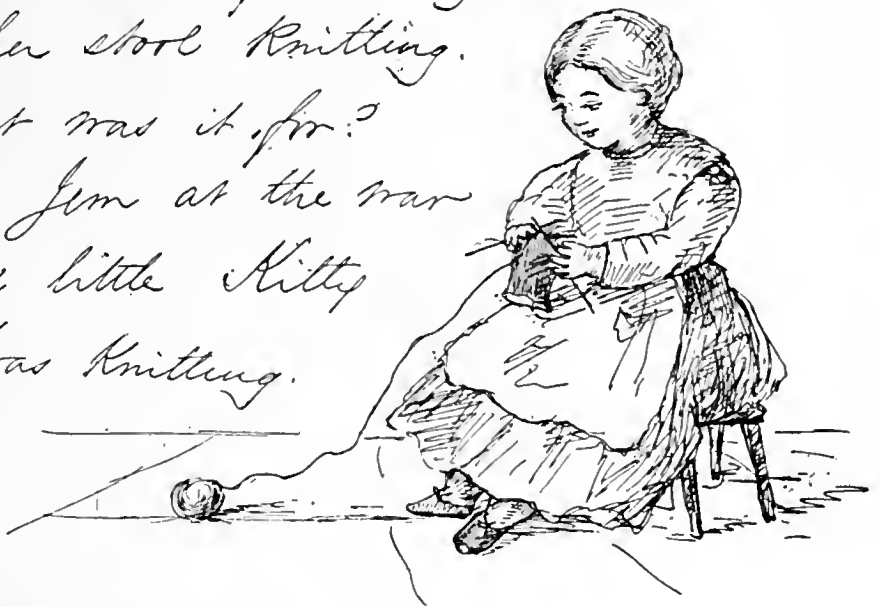 stool Knitting.
was it for?
Jem at the war
little Kitty
Knitting.